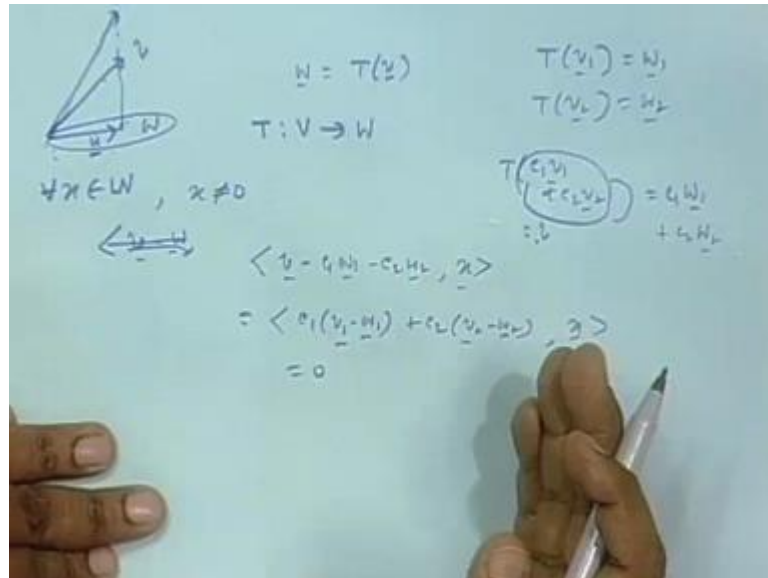 v
W
w = T(v)
T : V → W
∀x ∈ W , x ≠ 0
T(v₁) = w₁
T(v₂) = w₂
T(c₁v₁ + c₂v₂) = c₁w₁ + c₂w₂
:= v
⟨v - c₁w₁ - c₂w₂, x⟩
= ⟨c₁(v₁-w₁) + c₂(v₂-w₂), x⟩
= 0